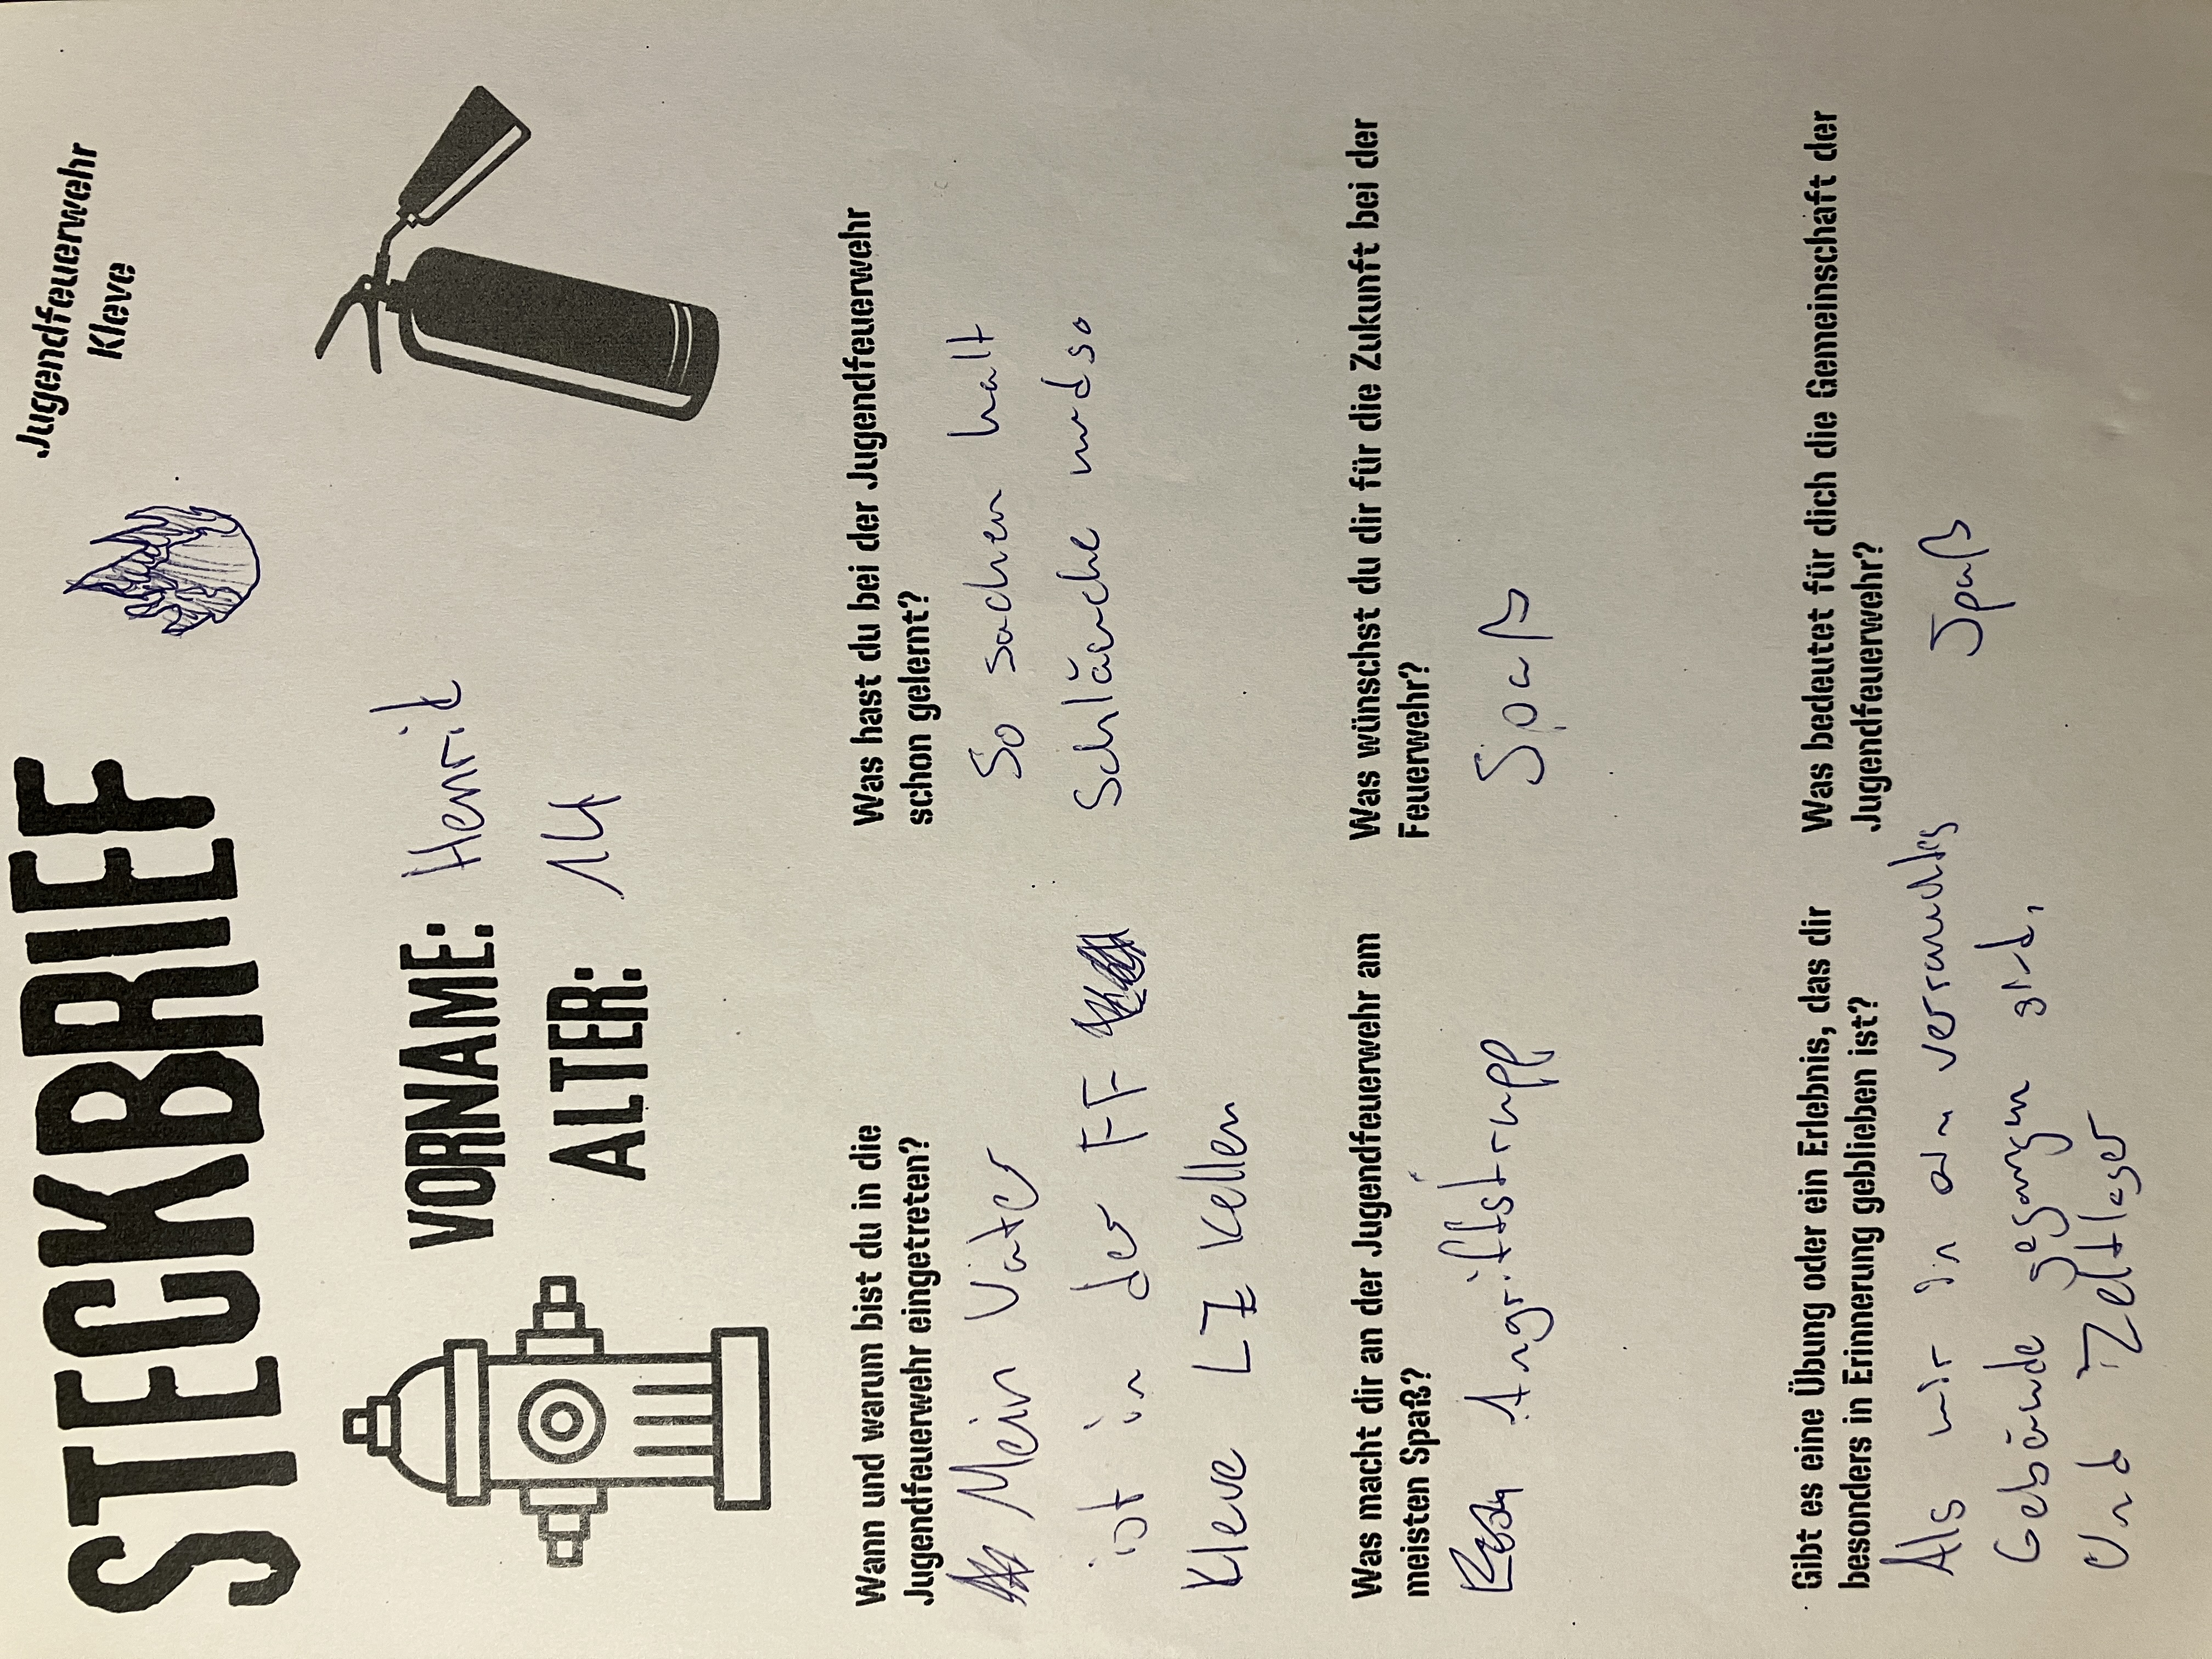 STECKBRIEF
Jugendfeuerwehr
Kleve
VORNAME: Henrik
ALTER: 14
Wann und warum bist du in die
Jugendfeuerwehr eingetreten?
Mein Vater
ist in der FF
Kleve LZ Kellen
Was hast du bei der Jugendfeuerwehr
schon gelernt?
So sachen halt
Schläuche undso
Was macht dir an der Jugendfeuerwehr am
meisten Spaß?
Angriffstrupp
Was wünschst du dir für die Zukunft bei der
Feuerwehr?
Spaß
Gibt es eine Übung oder ein Erlebnis, das dir
besonders in Erinnerung geblieben ist?
Als wir in ein verrauchtes
Gebäude gegangen sind.
Und Zeltlager
Was bedeutet für dich die Gemeinschaft der
Jugendfeuerwehr?
Spaß